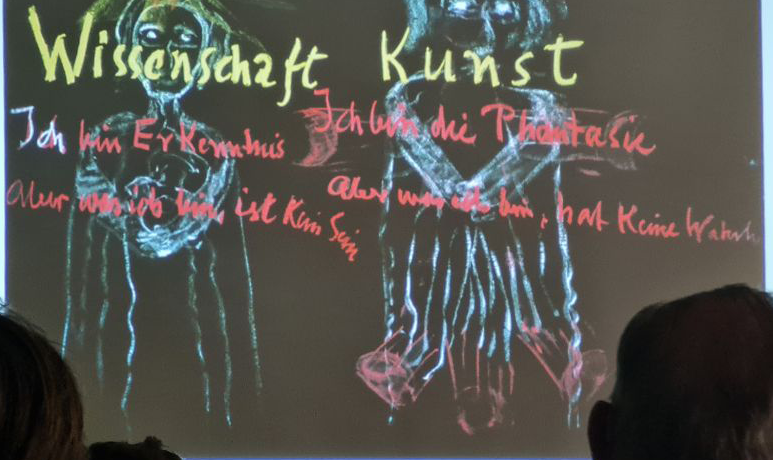 Wissenschaft Kunst
Ich bin Erkenntnis
Aber was ich bin, ist Kein Sein
Ich bin die Phantasie
Aber was ich bin, hat Keine